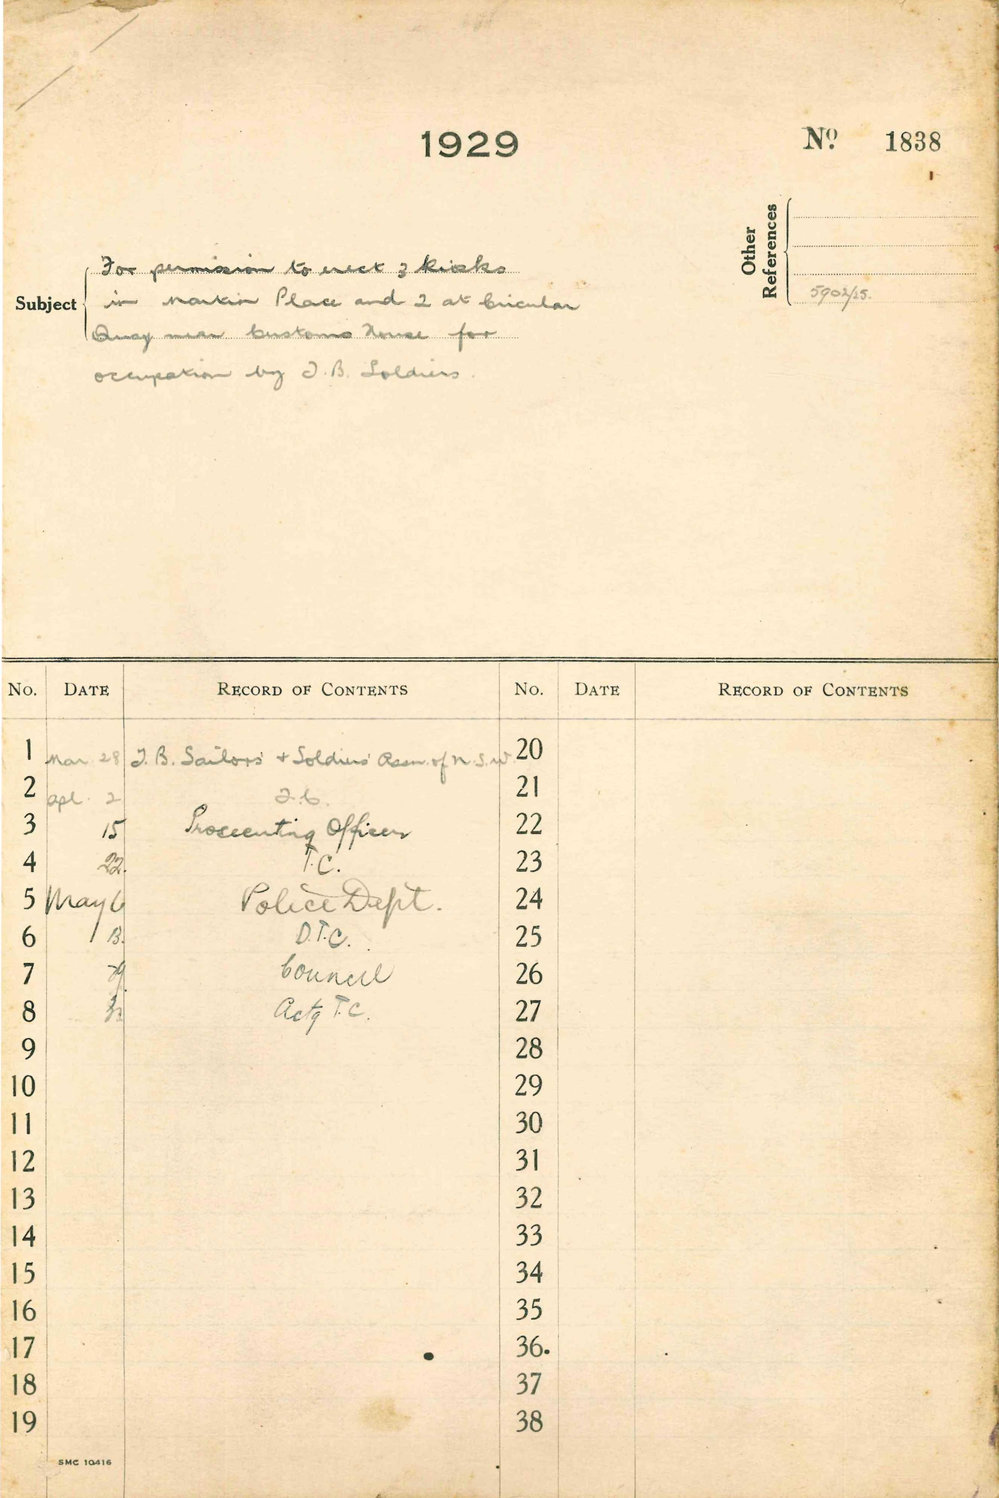 1929
No. 1838
Other References
5902/25.
Subject
For permission to erect 3 kiosks
in Martin Place and 2 at Circular
Quay near Customs House for
occupation by T.B. Soldiers.
No. DATE RECORD OF CONTENTS No. DATE RECORD OF CONTENTS
1 Mar 28 T.B. Sailors' & Soldiers' Assn. of N.S.W. 20
2 Apl. 2 T.C. 21
3 15 Prosecuting Officer 22
4 22. T.C. 23
5 May 6 Police Dept. 24
6 13. D.T.C. 25
7 Council 26
8 Actg T.C. 27
9 28
10 29
11 30
12 31
13 32
14 33
15 34
16 35
17 36
18 37
19 38
SMC 10416